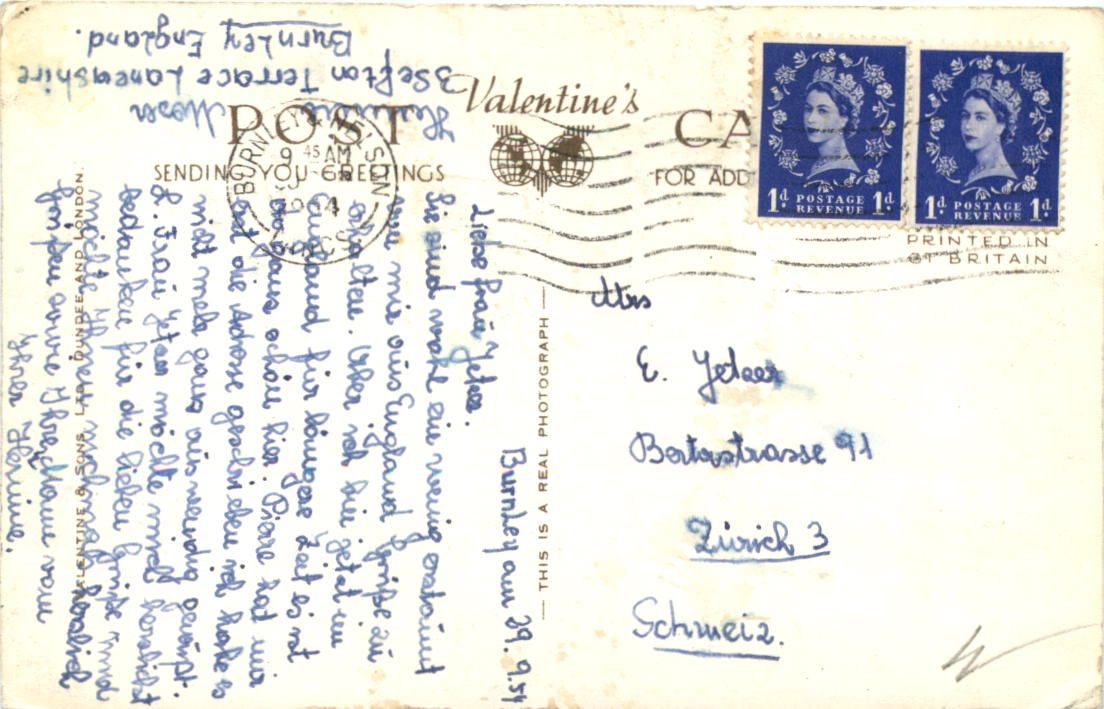 Valentine's
POST CA
SENDING YOU GREETINGS
FOR ADD
BURNLEY
9 45 AM
1d POSTAGE REVENUE 1d
1d POSTAGE REVENUE 1d
PRINTED IN
GT BRITAIN
THIS IS A REAL PHOTOGRAPH
VALENTINE & SONS. LTD. DUNDEE AND LONDON.
Moser
3 Sefton Terrace Lancashire
Burnley England.
Burnley am 29. 9. 54
Liebe Frau
Sie sind wohl ein wenig erstaunt
von mir aus England Grüße zu
erhalten. Aber ich bin jetzt in
England für längere Zeit es ist
ganz schön hier. Pierre hat mir
die Adresse geschrieben ich habe es
nicht mehr ganz auswendig gewußt.
L. Frau möchte mich herzlichst
bedanken für die lieben Grüße und
möchte Ihnen nochmals herzlich
Grüßen
Ihrer Hermine.
Mrs
E.
Bertastrasse 91
Zürich 3
Schweiz.